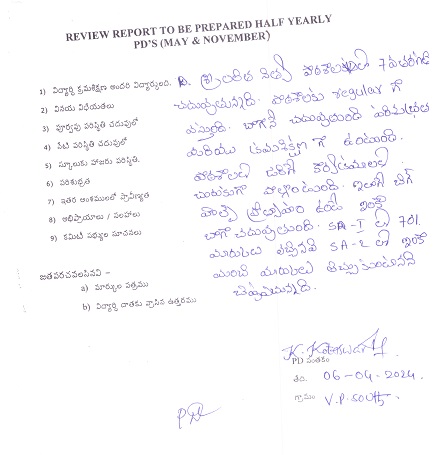 REVIEW REPORT TO BE PREPARED HALF YEARLY
PD'S (MAY & NOVEMBER)
1) విద్యార్థి క్రమశిక్షణ అందరి విద్యార్థులది.
2) వినయ విధేయతలు
3) పూర్వపు పరిస్థితి చదువులో
4) నేటి పరిస్థితి చదువులో
5) స్కూలుకు హాజరు పరిస్థితి.
6) పరిశుభ్రత
7) ఇతర అంశములలో ప్రావీణ్యత
8) అభిప్రాయాలు / సలహాలు
9) కమిటీ సభ్యుల సూచనలు
జతపరచవలసినవి –
a) మార్కుల పత్రము
b) విద్యార్థి దాతకు వ్రాసిన ఉత్తరము
పాఠశాలలో 7వతరగతి
చదువుతున్నాడు. పాఠశాలకు regular గా
వస్తుంది. బాగానే చదువుతుంది పరిశుభ్రత
మరియు క్రమశిక్షణ గా ఉంటుంది.
పాఠశాలలో జరిగే కార్యక్రమాలలో
చురుకుగా పాల్గొంటుంది.
ఇంకా
బాగా చదువుతుంది. SA-I లో 701
మార్కులు వచ్చినవి SA-2 లో ఇంకా
మంచి మార్కులు
చెప్పుచున్నది.
PD సంతకం
తేది. 06-04-2024
గ్రామం V.P. South